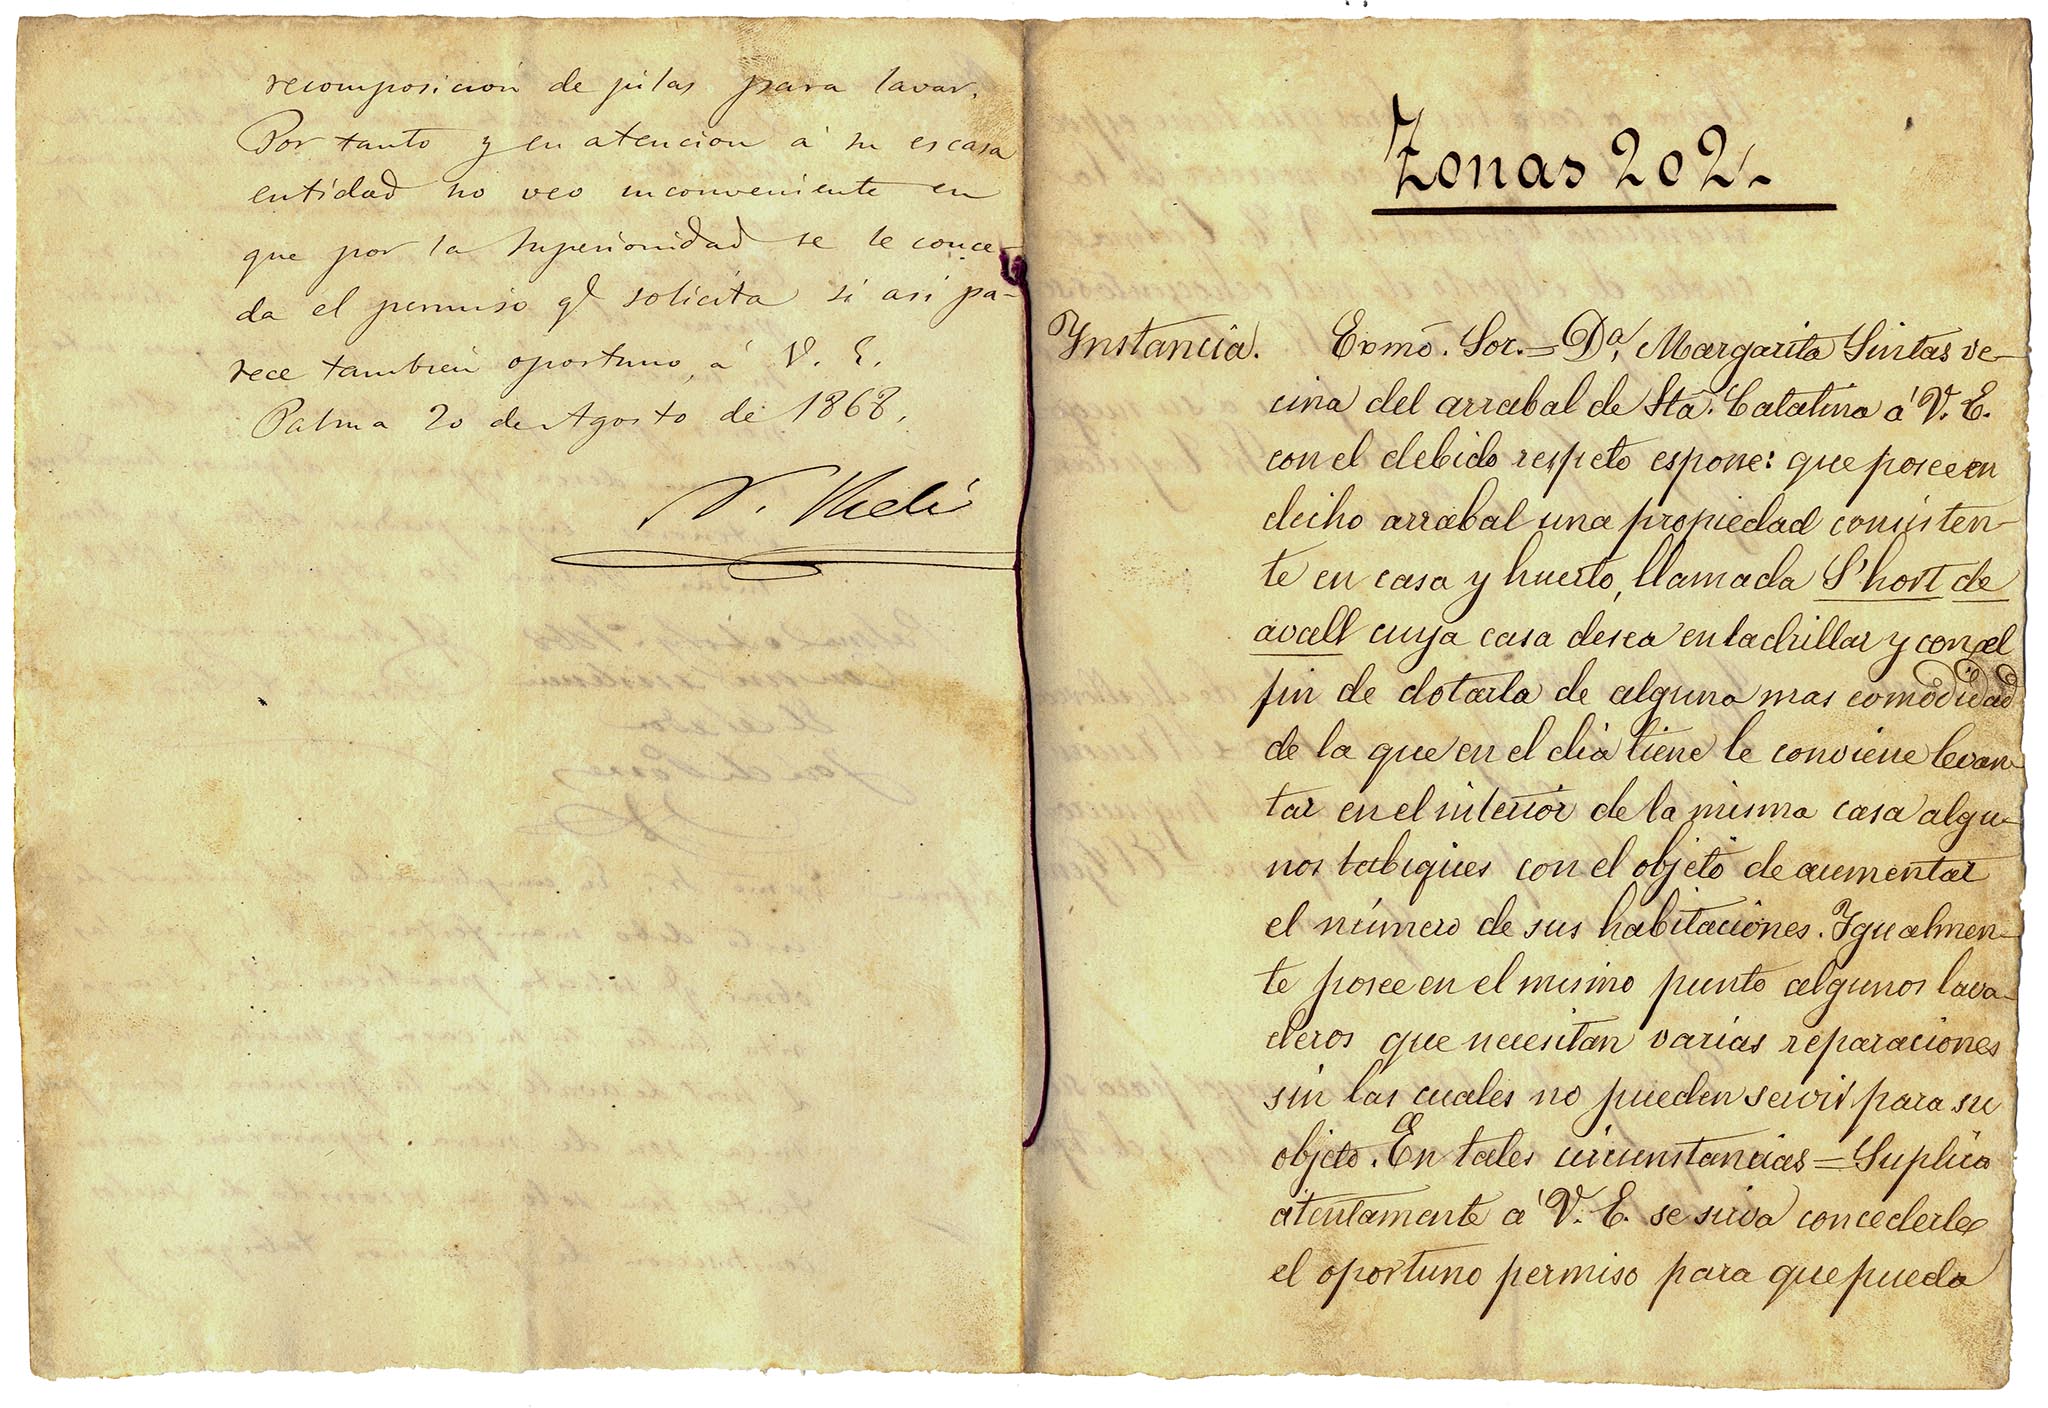 recomposición de pilas para lavar.
Por tanto y en atencion á su escasa
entidad no veo inconveniente en
que por la Superioridad se le conce-
da el permiso qe solicita si asi pa-
rece tambien oportuno, á V. E.
Palma 20 de Agosto de 1868.
Zonas 202.
Ynstancia. Exmô. Sor. = Da. Margarita Sintas ve-
cina del arrabal de Sta. Catalina á V. E.
con el debido respeto espone: que posee en
dicho arrabal una propiedad consisten-
te en casa y huerto, llamada S'hort de
avall cuya casa desea enladrillar y con el
fin de dotarla de alguna mas comodidad
de la que en el dia tiene le conviene levan-
tar en el interior de la misma casa algu-
nos tabiques con el objeto de aumentar
el número de sus habitaciones. Igualmen-
te posee en el mismo punto algunos lava-
deros que necesitan varias reparaciones
sin las cuales no pueden servir para su
objeto. En tales circunstancias = Suplica
atentamente á V. E. se sirva concederle
el oportuno permiso para que pueda